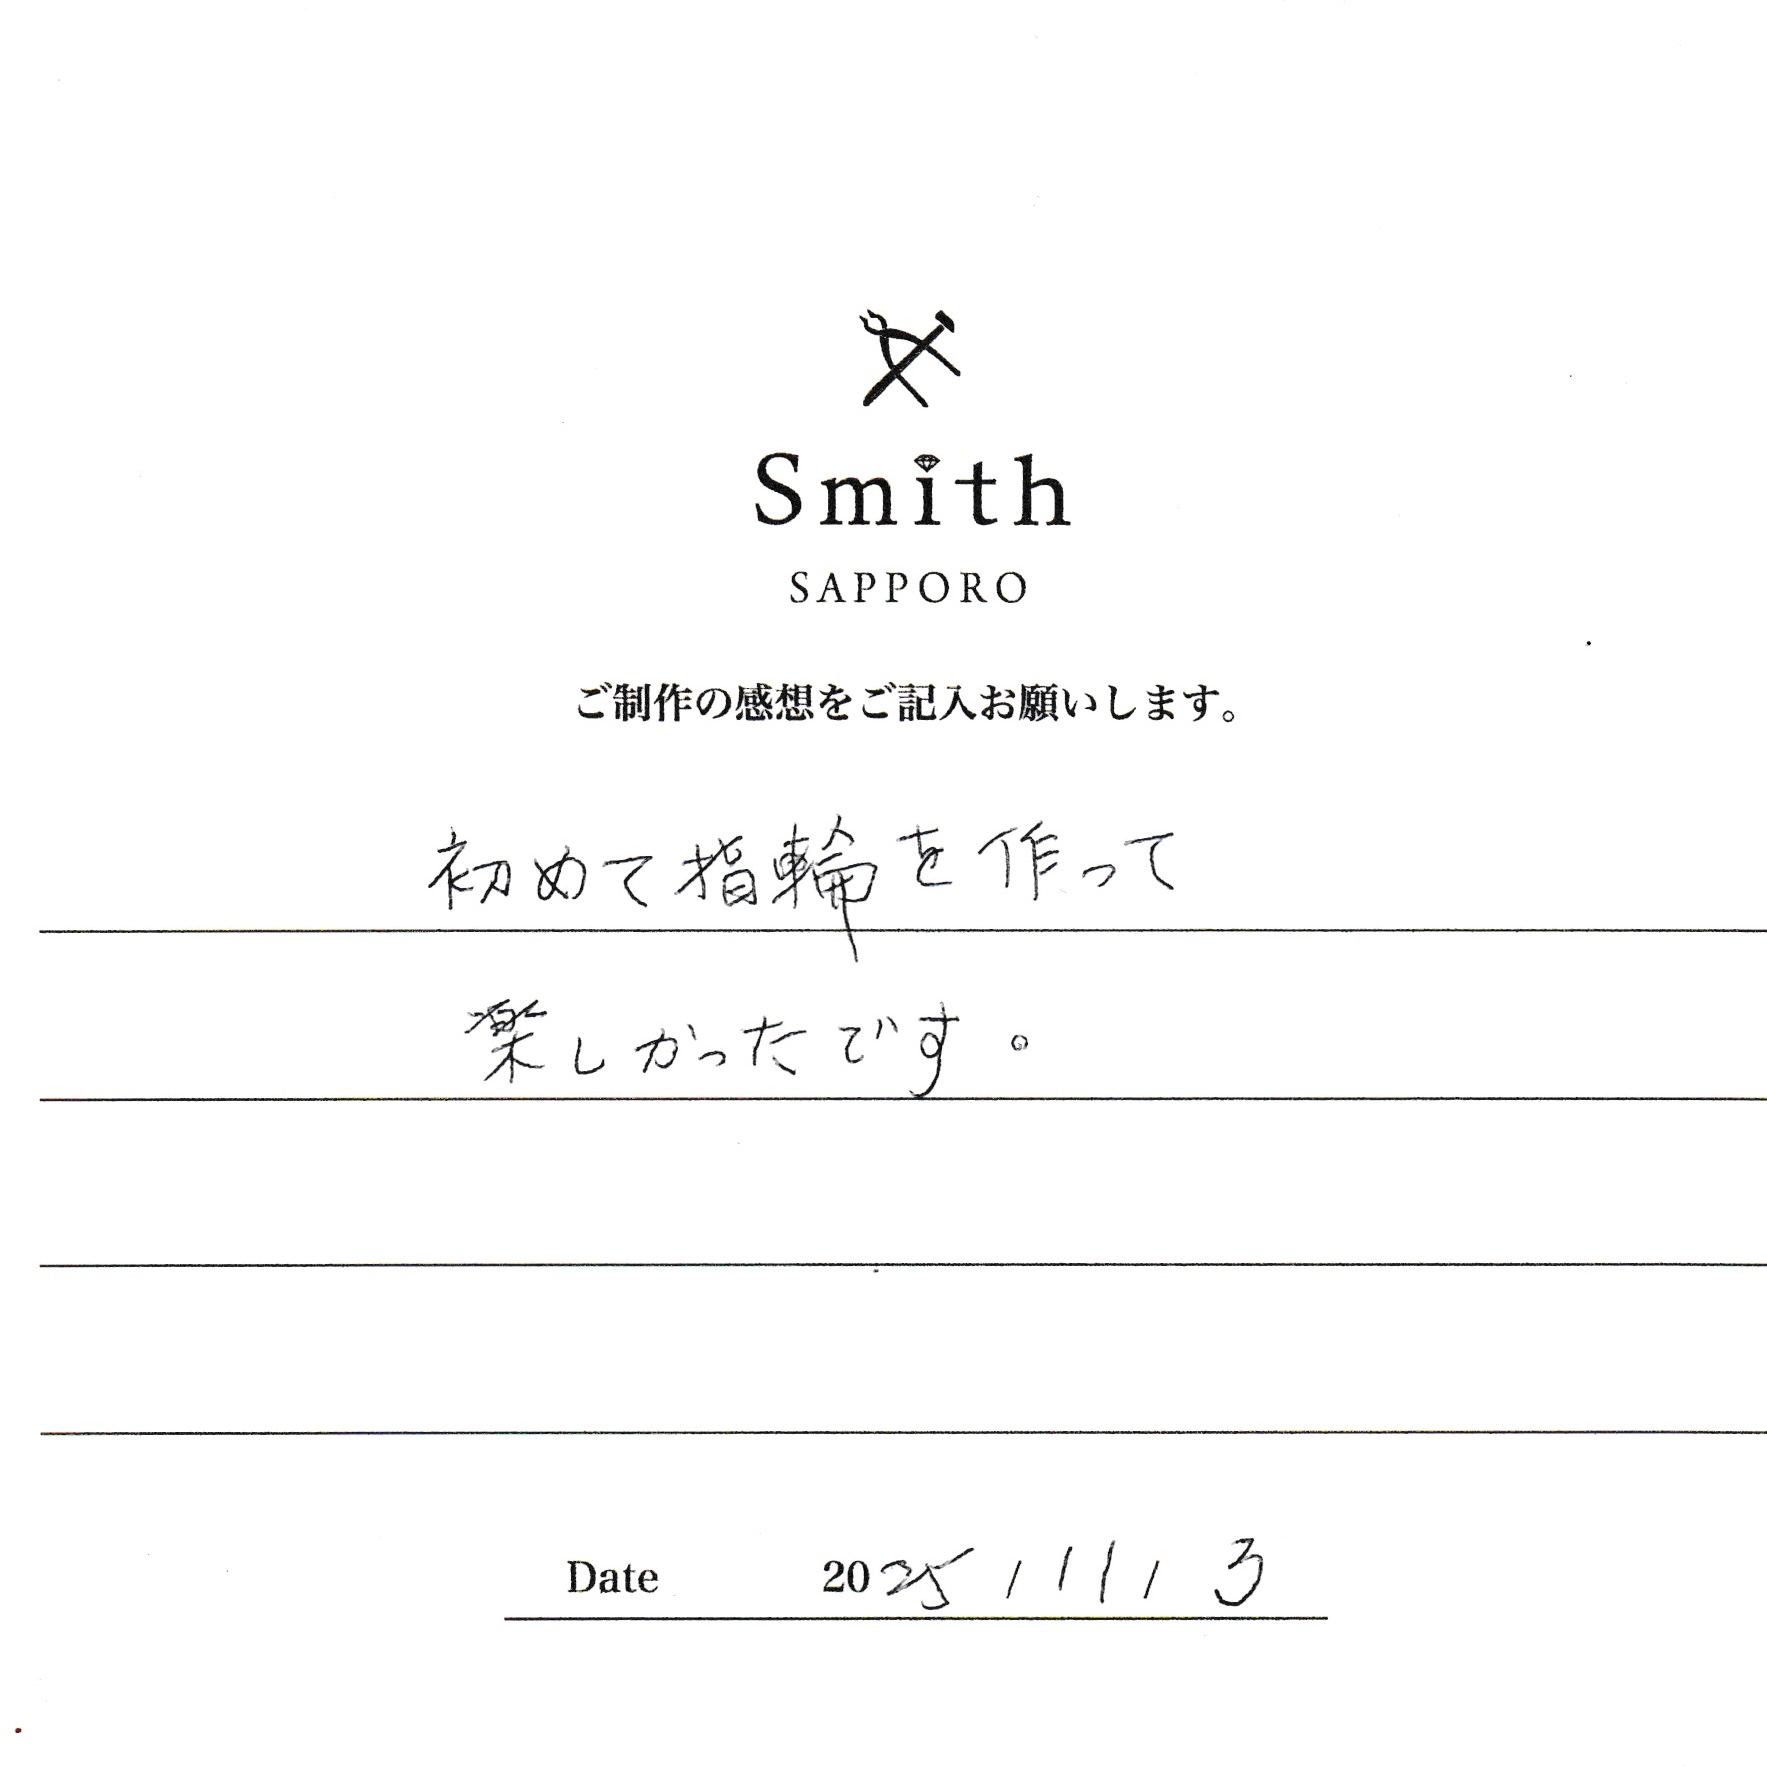 Smith
SAPPORO
ご制作の感想をご記入お願いします。
初めて指輪を作って
楽しかったです。
Date 2025/11/3